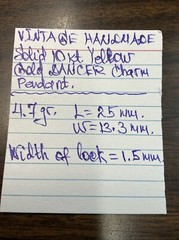 VINTAGE HANDMADE
Solid 10kt Yellow
Gold DANCER Charm
Pendant.
4.7 gr. L = 25 mm.
W = 13.3 mm.
Width of lock = 1.5 mm.